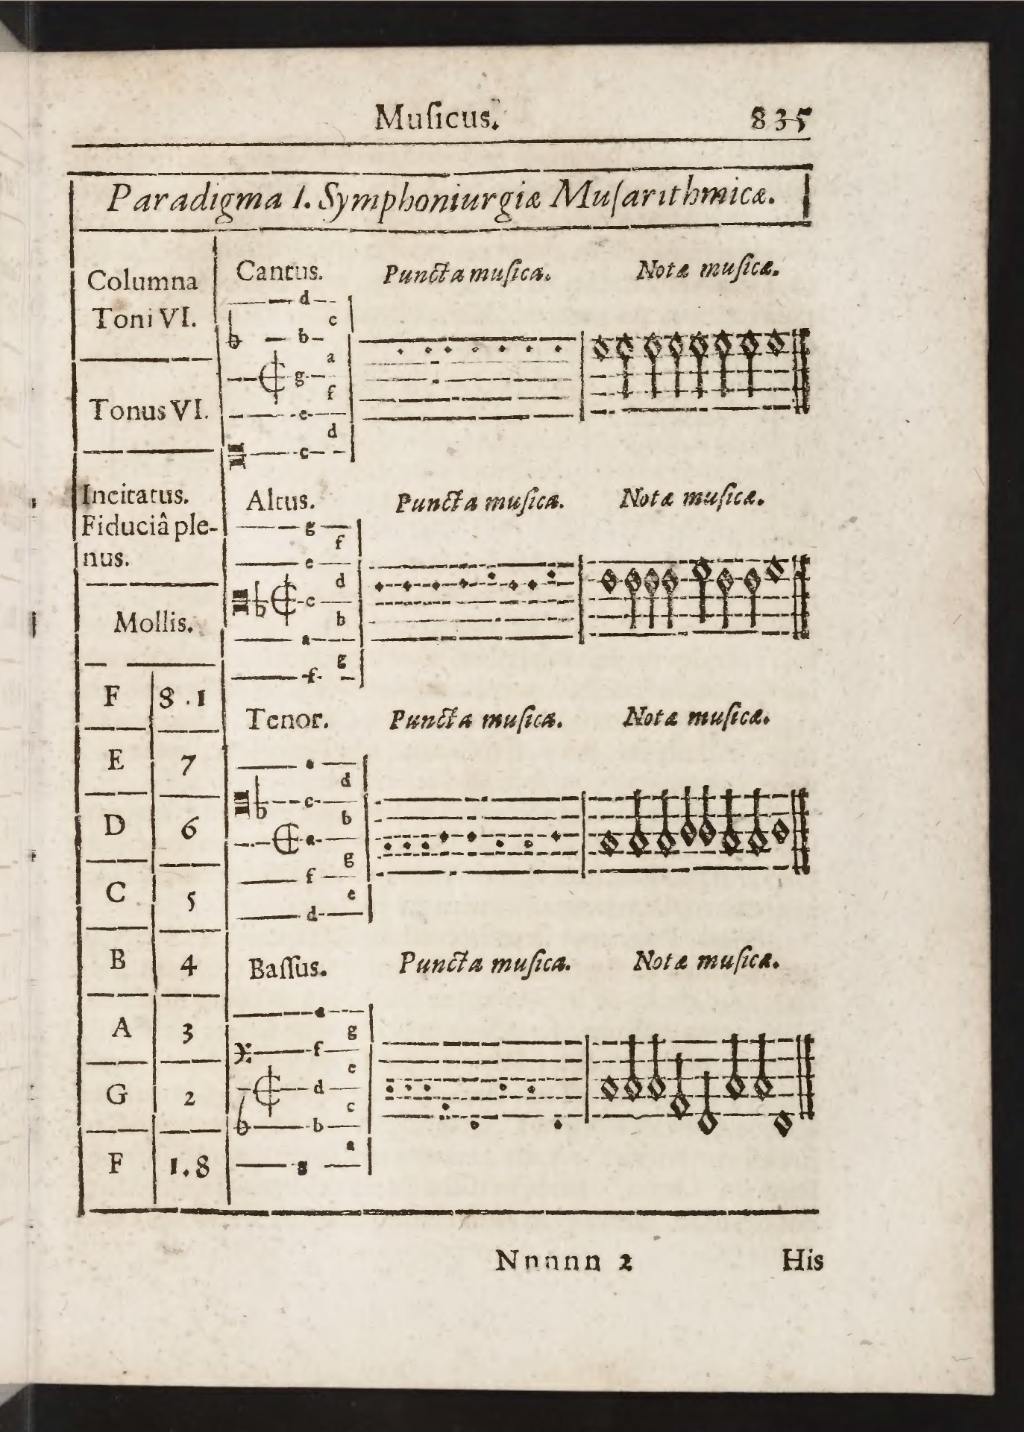 Muſicus. 835
Paradigma I. Symphoniurgiæ Muſarithmicæ.
Columna
Toni VI.
Tonus VI.
Incitatus.
Fiduciâ ple-
nus.
Mollis.
F 8.1
E 7
D 6
C 5
B 4
A 3
G 2
F 1.8
Cantus. Puncta muſica. Notæ muſicæ.
d
c
b
a
g
f
e
d
c
Altus. Puncta muſica. Notæ muſicæ.
g
f
e
d
c
b
a
g
f
Tenor. Puncta muſica. Notæ muſicæ.
e
d
c
b
a
g
f
e
d
Baſſus. Puncta muſica. Notæ muſicæ.
a
g
f
e
d
c
b
a
g
Nnnnn 2 His